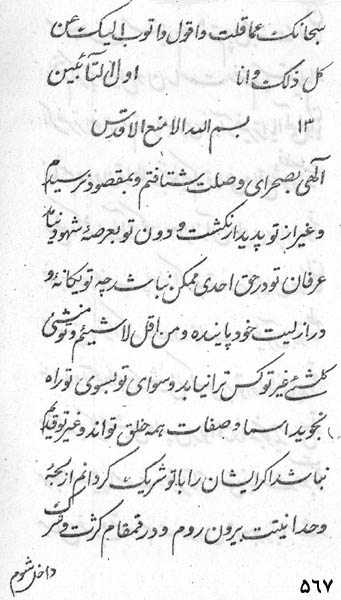 سبحانک عما قلت و اقول و اتوب الیک عن
کل ذلک و انا اول التائبین
۱۳ بسم الله الامنع الاقدس
الهی بصحرای وصلت شتافتم و بمقصود نرسیدم
و غیر از تو پدیدار نگشت و دون تو بعرصهٔ شهود نیامد
عرفان تو در حق احدی ممکن نباشد چه تو یگانهٔ و
در ازلیت خود پاینده و من اقل لا شیئم و تو منشئ
کلشئ غیر تو کس ترا نیابد و سوای تو بسوی تو راه
نجوید اسما و صفات همه خلق تواند و غیر تو قدیم
نباشد اگر ایشان را با تو شریک گردانم از لجهٔ
وحدانیتت بیرون روم و در قمقام کثرت و شرک
داخل شوم
۵۶۷